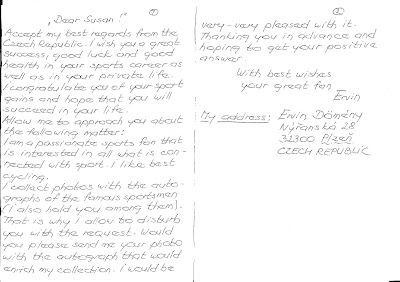 „Dear Susan!"
1
Accept my best regards from the
Czech Republic. I wish you a great
success, good luck and good
health in your sports career as
well as in your private life.
I congratulate you of your sport
gains and hope that you will
succeed in your life.
Allow me to approach you about
the following matter:
I am a passionate sports fan that
is interested in all what is con-
nected with sport. I like best
cycling.
I collect photos with the auto-
graphs of the famous sportsmen
(I also hold you among them).
That is why I allow to disturb
you with the request. Would
you please send me your photo
with the autograph that would
enrich my collection. I would be
2
very-very pleased with it.
Thanking you in advance and
hoping to get your positive
answer.
With best wishes
your great fan
Ervin
My address: Ervin Dömény
Nýřanská 28
32300 Plzeň
CZECH REPUBLIC